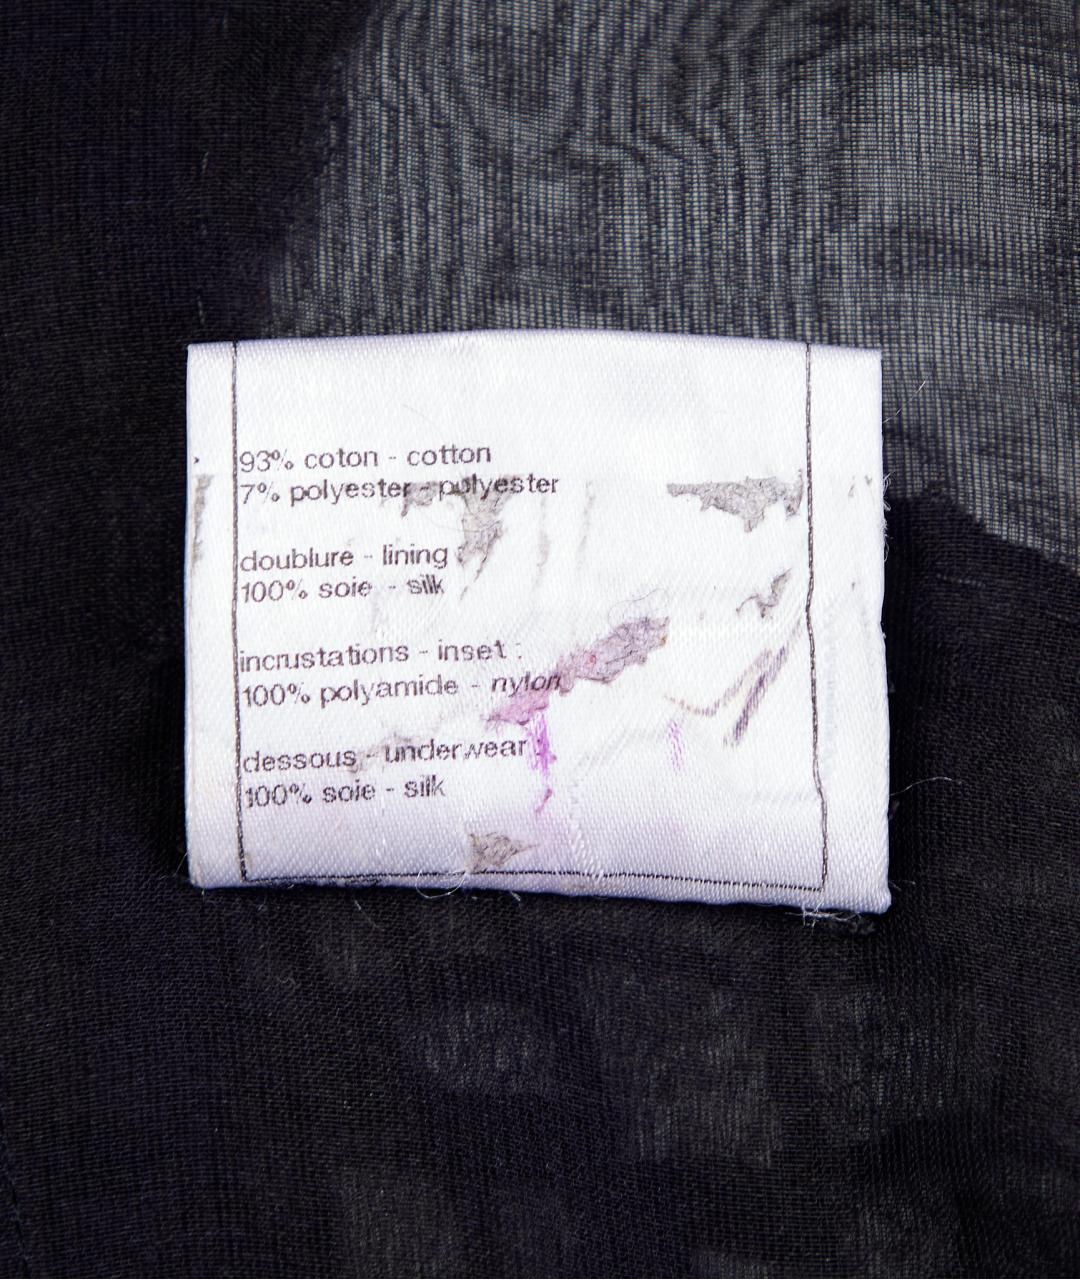 93% coton - cotton
7% polyester - polyester
doublure - lining :
100% soie - silk
incrustations - inset :
100% polyamide - nylon
dessous - underwear :
100% soie - silk